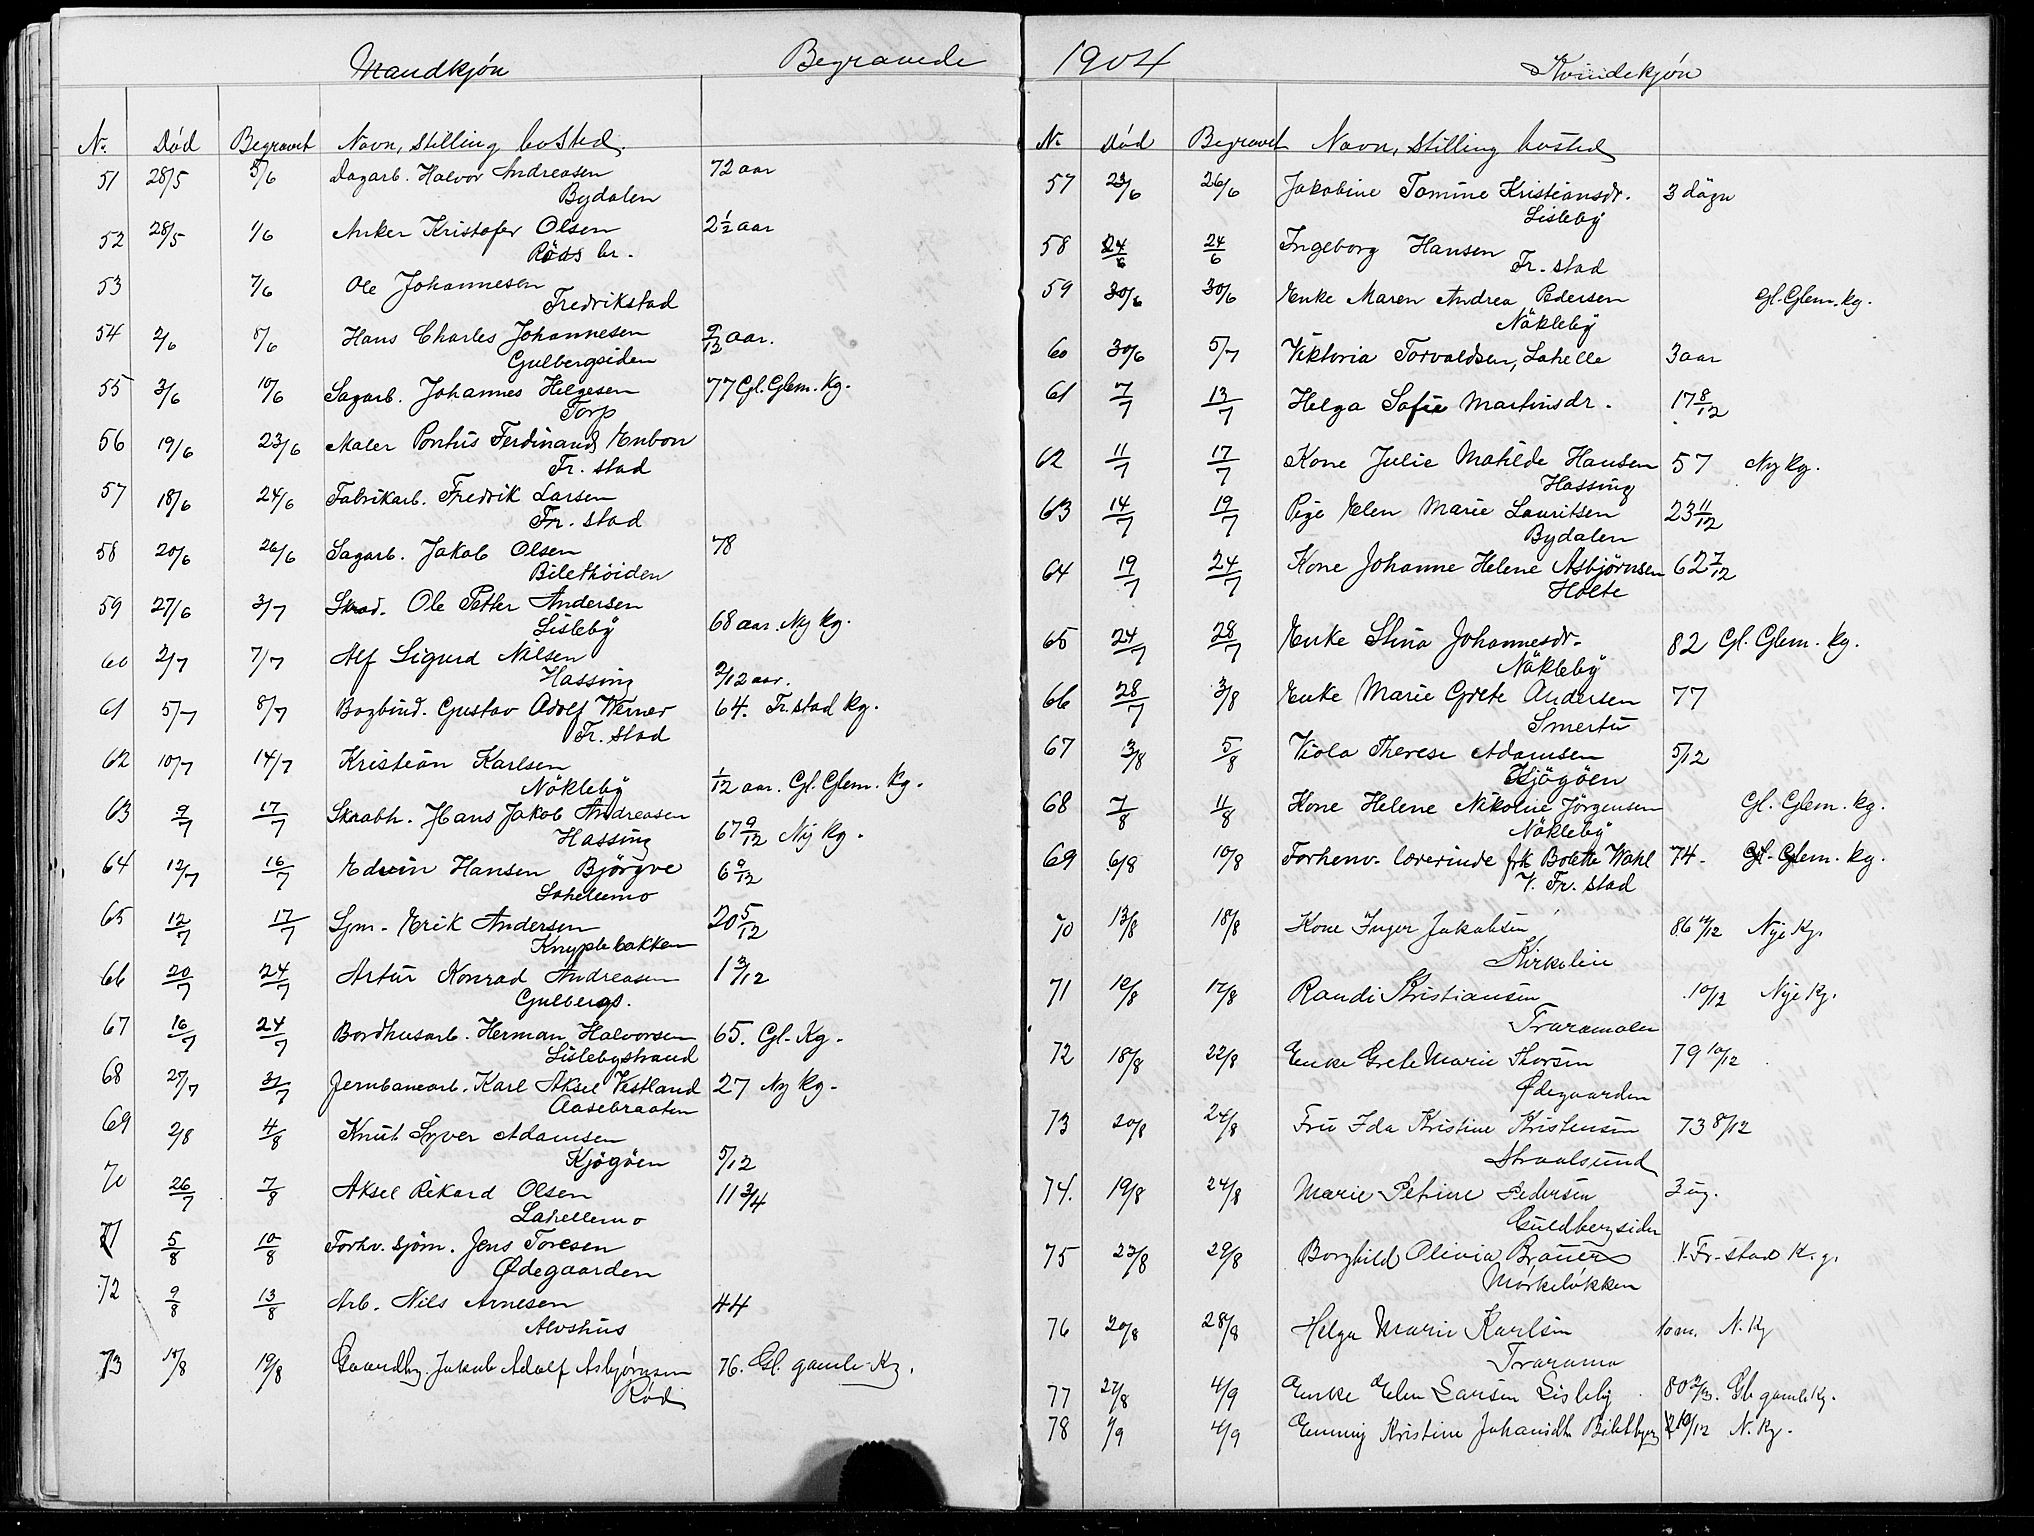 Mandkjøn Begravede
N. Død Begravet Navn, stilling bosted
51 28/5 5/6 Dagarb. Halvor Andreasen 72 aar
Bydalen
52 28/5 1/6 Anker Kristofer Olsen 2½ aar
Röds br.
53 7/6 Ole Johannesen
Fredrikstad
54 2/6 8/6 Hans Charles Johannesen 9/12 aar.
Gulbergsiden
55 3/6 10/6 Sagarb. Johannes Helgesen 77 Gl. Glem. Kg.
Torp
56 19/6 23/6 Maler Pontus Ferdinand Enbon
Fr. stad
57 18/6 24/6 Fabrikarb. Fredrik Larsen
Fr. stad
58 20/6 26/6 Sagarb. Jakob Olsen 78
Bilethöiden
59 27/6 3/7 Skrad. Ole Petter Andersen
Lisleby 68 aar. Ny Kg.
60 2/7 7/7 Alf Sigurd Nilsen
Hassing 2/12 aar.
61 5/7 8/7 Bogbind. Gustav Adolf Werner 64. Fr. stad Kg.
Fr. stad
62 10/7 14/7 Kristian Karlsen
Nökleby 1/12 aar. Gl. Glem. Kg.
63 9/7 17/7 Skrabh. Hans Jakob Andreasen
Hassing 67 9/12 Ny Kg.
64 12/7 16/7 Edvin Hansen Björgve 6 9/12
Lahellemo
65 12/7 17/7 Sjm. Erik Andersen 20 5/12
Knyplebakken
66 20/7 24/7 Artur Konrad Andreasen 1 3/12
Gulbergs.
67 16/7 24/7 Bordhusarb. Herman Halvorsen 65. Gl. Kg.
Lislebystrand
68 27/7 31/7 Jernbanearb. Karl Aksel Vestland 27 Ny Kg.
Aasebraaten
69 2/8 4/8 Knut Syver Adamsen
Kjögöen 5/12
70 26/7 7/8 Aksel Rikard Olsen 11 3/4
Lahellemo
71 5/8 10/8 Forhv. sjøm. Jens Toresen
Ødegaarden
72 9/8 13/8 Arb. Nils Arnesen 44
Alvshus
73 15/8 19/8 Gaardbr. Jakob Adolf Asbjørnsen 76. Gl. gamle Kg.
Rød
1904 Kvindekjøn
N. Død Begravet Navn, stilling bosted
57 23/6 26/6 Jakobine Tomine Kristiansdr. 3 dägn
Lisleby
58 24/6 24/6 Ingeborg Hansen
Fr. stad
59 30/6 30/6 Enke Maren Andrea Pedersen Gl. Glem. Kg.
Näkleby
60 30/6 5/7 Viktoria Torvaldsen, Lahelle 3 aar
61 7/7 13/7 Helga Sofie Martinsdr. 17 8/12
62 11/7 17/7 Kone Julie Matilde Hansen 57 Ny Kg.
Hassing
63 14/7 19/7 Pige Elen Marie Lauritsen 23 11/12
Bydalen
64 19/7 24/7 Kone Johanne Helene Asbjørnsen 62 7/12
Holte
65 24/7 28/7 Enke Stina Johannesdr. 82 Gl. Glem. Kg.
Näkleby
66 28/7 3/8 Enke Marie Grete Andersen 77
Smertu
67 3/8 5/8 Viola Therese Adamsen 5/12
Kjögöen
68 7/8 11/8 Kone Helene Nikoline Jörgensen Gl. Glem. Kg.
Näkleby
69 6/8 10/8 Forhenv. lærerinde frk Bolette Wahl 74. Gl. Glem. Kg.
V. Fr. stad
70 13/8 18/8 Kone Inger Jakobsen 86 Nye Kg.
Kirkelien
71 12/8 17/8 Randi Kristiansen 10/12 Nye Kg.
Traramalen
72 18/8 22/8 Enke Grete Marie Thorsen 79 10/12
Ødegaarden
73 20/8 24/8 Fru Ida Kristine Kristensen 73 8/12
Straalsund
74. 19/8 24/8 Marie Petrine Pedersen 3 ug.
Guldbergsiden
75 23/8 29/8 Borghild Olivia Brauer V. Fr. stad K.g.
Mørkeløkken
76 20/8 28/8 Helga Marie Karlsen 10 m. N. Kg
Trarama
77 27/8 4/9 Enke Elen Larsen Lisleby 80 Gl. gamle Kg.
78 1/9 4/9 Emmy Kristine 10/12 N. Kg.